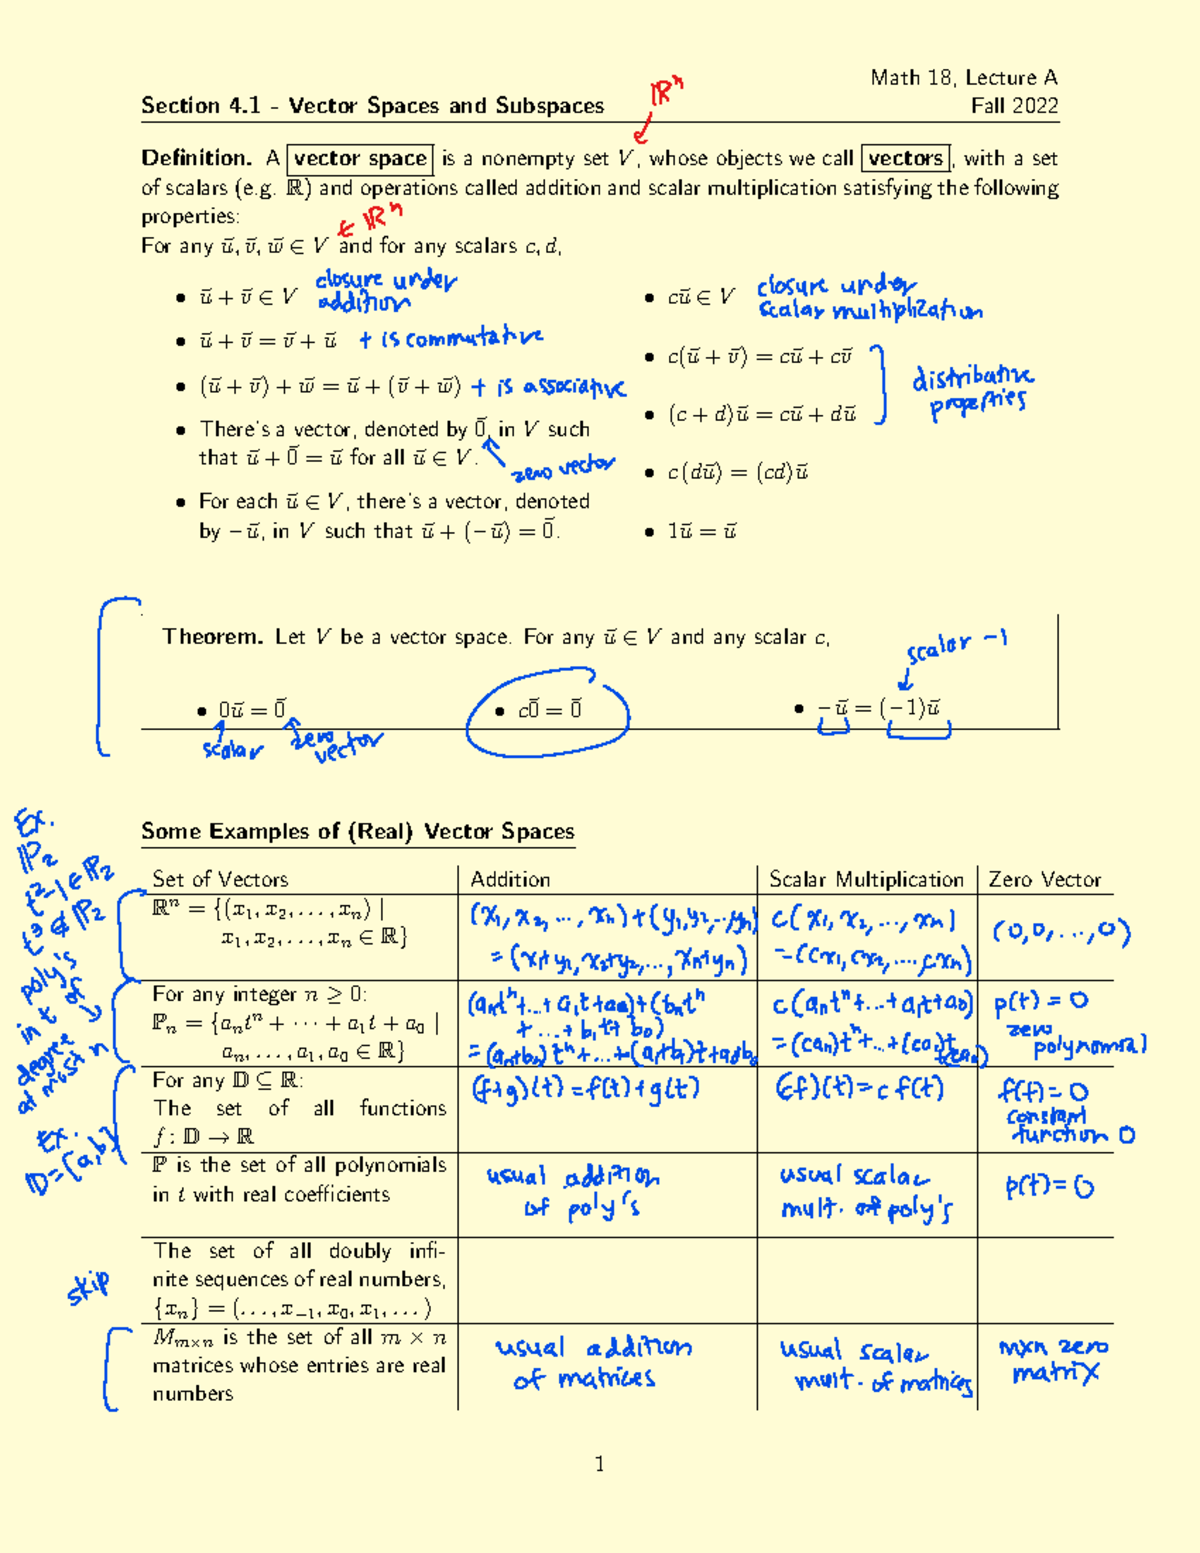 Math 18, Lecture A
Section 4.1 - Vector Spaces and Subspaces
Fall 2022
ℝⁿ
Definition. A vector space is a nonempty set V, whose objects we call vectors, with a set
of scalars (e.g. ℝ) and operations called addition and scalar multiplication satisfying the following
properties:
∈ ℝⁿ
For any u⃗, v⃗, w⃗ ∈ V and for any scalars c, d,
• u⃗ + v⃗ ∈ V closure under
addition
• u⃗ + v⃗ = v⃗ + u⃗ + is commutative
• (u⃗ + v⃗) + w⃗ = u⃗ + (v⃗ + w⃗) + is associative
• There's a vector, denoted by 0⃗, in V such
that u⃗ + 0⃗ = u⃗ for all u⃗ ∈ V.
zero vector
• For each u⃗ ∈ V, there's a vector, denoted
by −u⃗, in V such that u⃗ + (−u⃗) = 0⃗.
• cu⃗ ∈ V closure under
scalar multiplization
• c(u⃗ + v⃗) = cu⃗ + cv⃗
• (c + d)u⃗ = cu⃗ + du⃗
distributive
properties
• c(du⃗) = (cd)u⃗
• 1u⃗ = u⃗
Theorem. Let V be a vector space. For any u⃗ ∈ V and any scalar c,
scalar −1
• 0u⃗ = 0⃗
• c0⃗ = 0⃗
• −u⃗ = (−1)u⃗
scalar
zero
vector
Some Examples of (Real) Vector Spaces
Ex.
ℙ₂
t²−1 ∈ ℙ₂
t³ ∉ ℙ₂
poly's
in t of
degree
at most n
Ex.
𝔻=[a,b]
Set of Vectors
Addition
Scalar Multiplication
Zero Vector
ℝⁿ = {(x₁, x₂, . . . , xₙ) |
x₁, x₂, . . . , xₙ ∈ ℝ}
(x₁, x₂, ..., xₙ)+(y₁,y₂,..,yₙ)
=(x₁+y₁, x₂+y₂,..., xₙ+yₙ)
c(x₁, x₂, ..., xₙ)
=(cx₁, cx₂, ..., cxₙ)
(0,0, ..., 0)
For any integer n ≥ 0:
ℙₙ = {aₙtⁿ + ··· + a₁t + a₀ |
aₙ, . . . , a₁, a₀ ∈ ℝ}
(aₙtⁿ+...+a₁t+a₀)+(bₙtⁿ
+...+b₁t+b₀)
=(aₙ+bₙ)tⁿ+...+(a₁+b₁)t+a₀+b₀
c(aₙtⁿ+...+a₁t+a₀)
=(caₙ)tⁿ+...+(ca₁)t
+(ca₀)
p(t) = 0
zero
polynomial
For any 𝔻 ⊆ ℝ:
The set of all functions
f : 𝔻 → ℝ
(f+g)(t)=f(t)+g(t)
(cf)(t)=c f(t)
f(t)=0
constant
function 0
ℙ is the set of all polynomials
in t with real coefficients
usual addition
of poly's
usual scalar
mult. of poly's
p(t)=0
skip
The set of all doubly infi-
nite sequences of real numbers,
{xₙ} = (. . . , x₋₁, x₀, x₁, . . . )
Mₘₓₙ is the set of all m × n
matrices whose entries are real
numbers
usual addition
of matrices
usual scalar
mult. of matrices
mxn zero
matrix
1